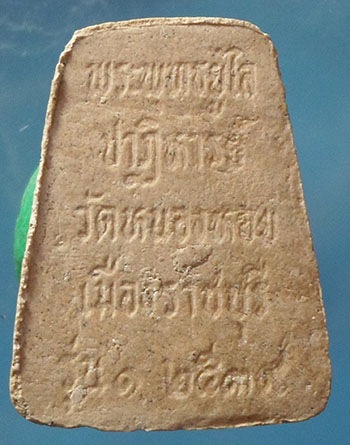 พระพุทธยูไล
ปาฏิหารย์
วัดหนองหอย
เมืองราชบุรี
รุ่น ๑